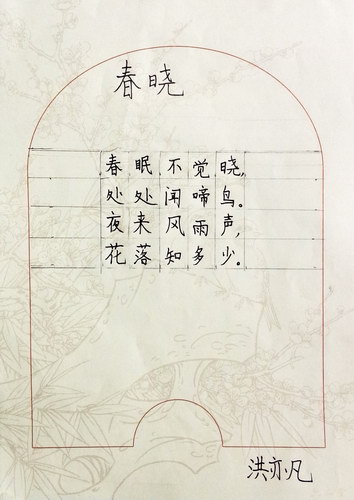 春晓
春眠不觉晓,
处处闻啼鸟。
夜来风雨声,
花落知多少。
洪亦凡